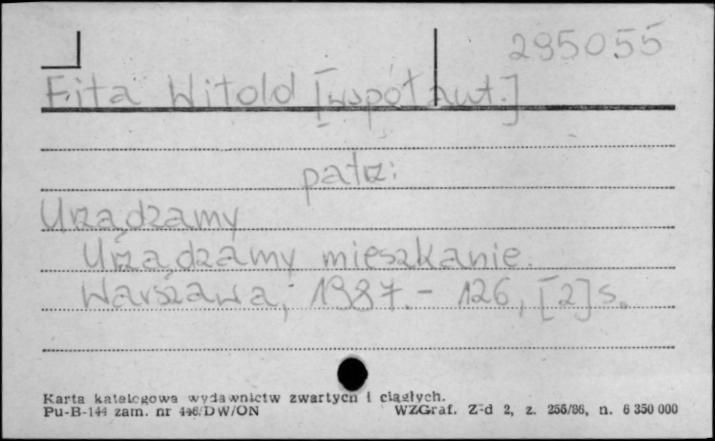 295055
Fita Witold [współaut.]
patrz:
Urządzamy
Urządzamy mieszkanie.
Warszawa, 1987. - 126, [2] s.
Karta katalogowa wydawnictw zwartych i ciągłych.
Pu-B-144 zam. nr 446/DW/ON WZGraf. Z-d 2, z. 256/86, n. 6 350 000